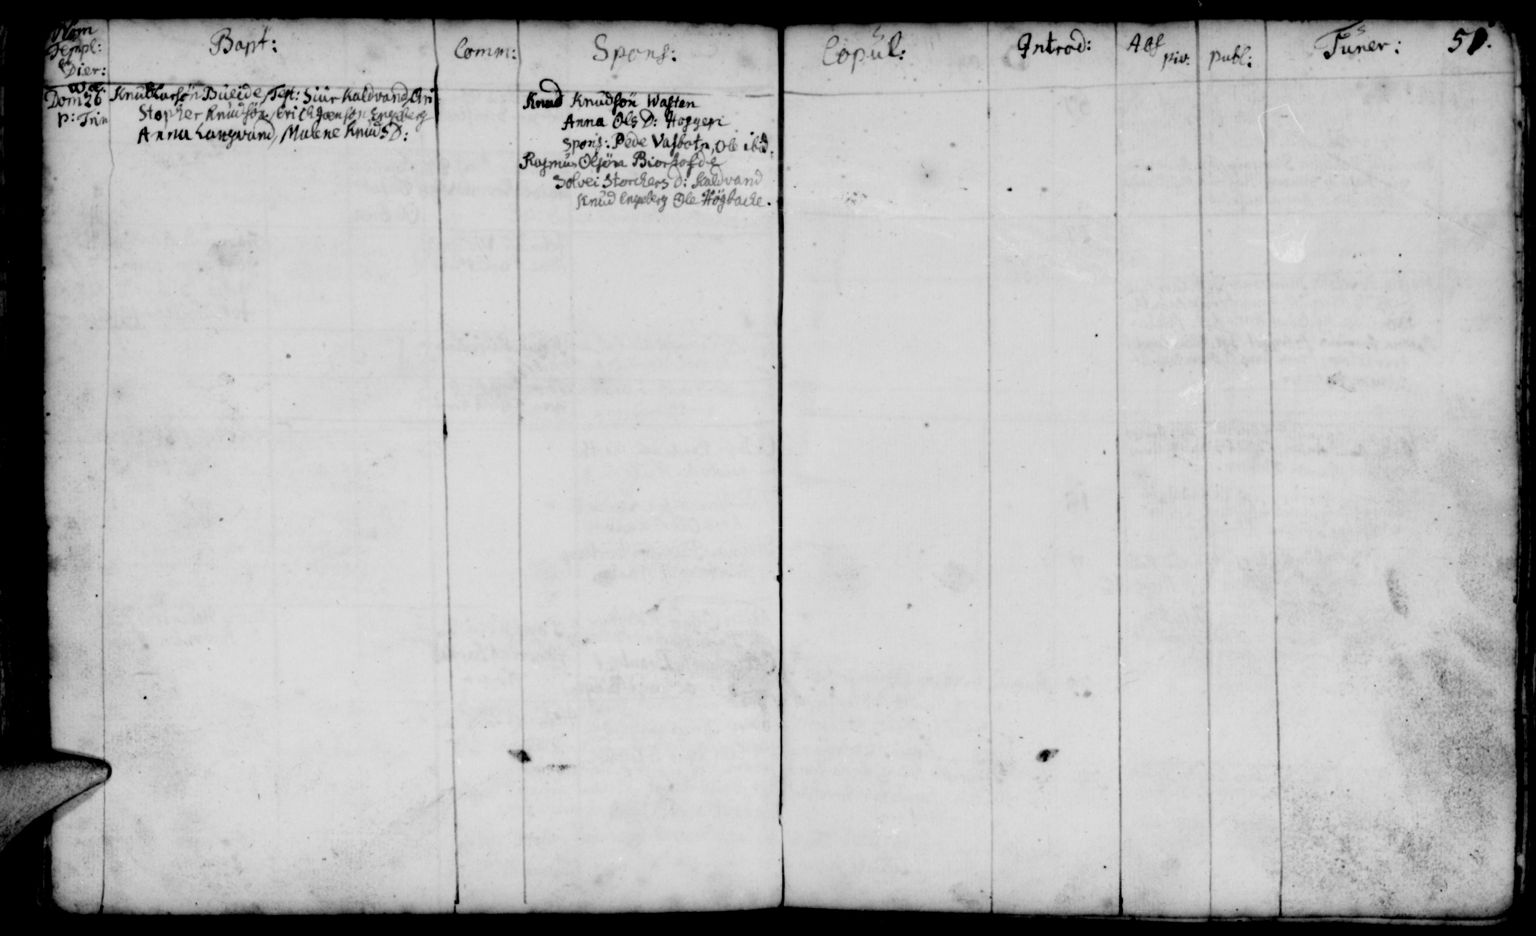 Nom
Templ:
Dier:
Bapt:
Comm:
Spons:
Copul:
Introd:
Abs
priv:
publ:
Funer:
51.
Dom 26
p: Trin
Knud Larsøn Bueide, Test: Siur Kaldvand, Chri
Stopher Knudsøn, Erich Jensøn Engeberg
Anna Langvand, Malene Knuds D:
Knud Knudsøn Wasten
Anna Ols D:
Spons: Pede Vasbotn, Ole ibd.
Rasmus Olsøn
Solvei Storchers D: Kaldvand
Knud Engeberg Ole Høgbacke.